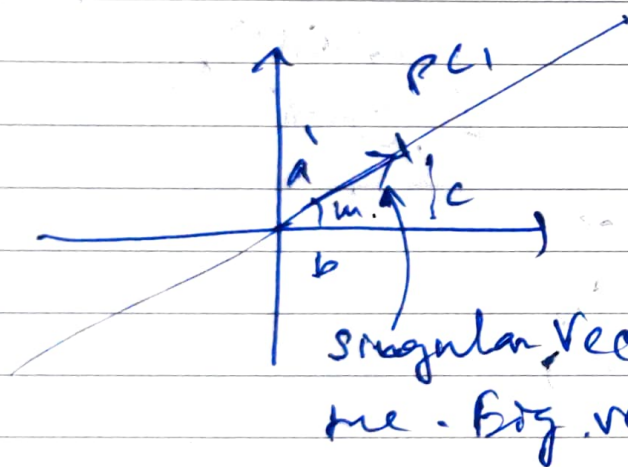 PC1
a
m.
c
b
singular Vec
the. Eig. v